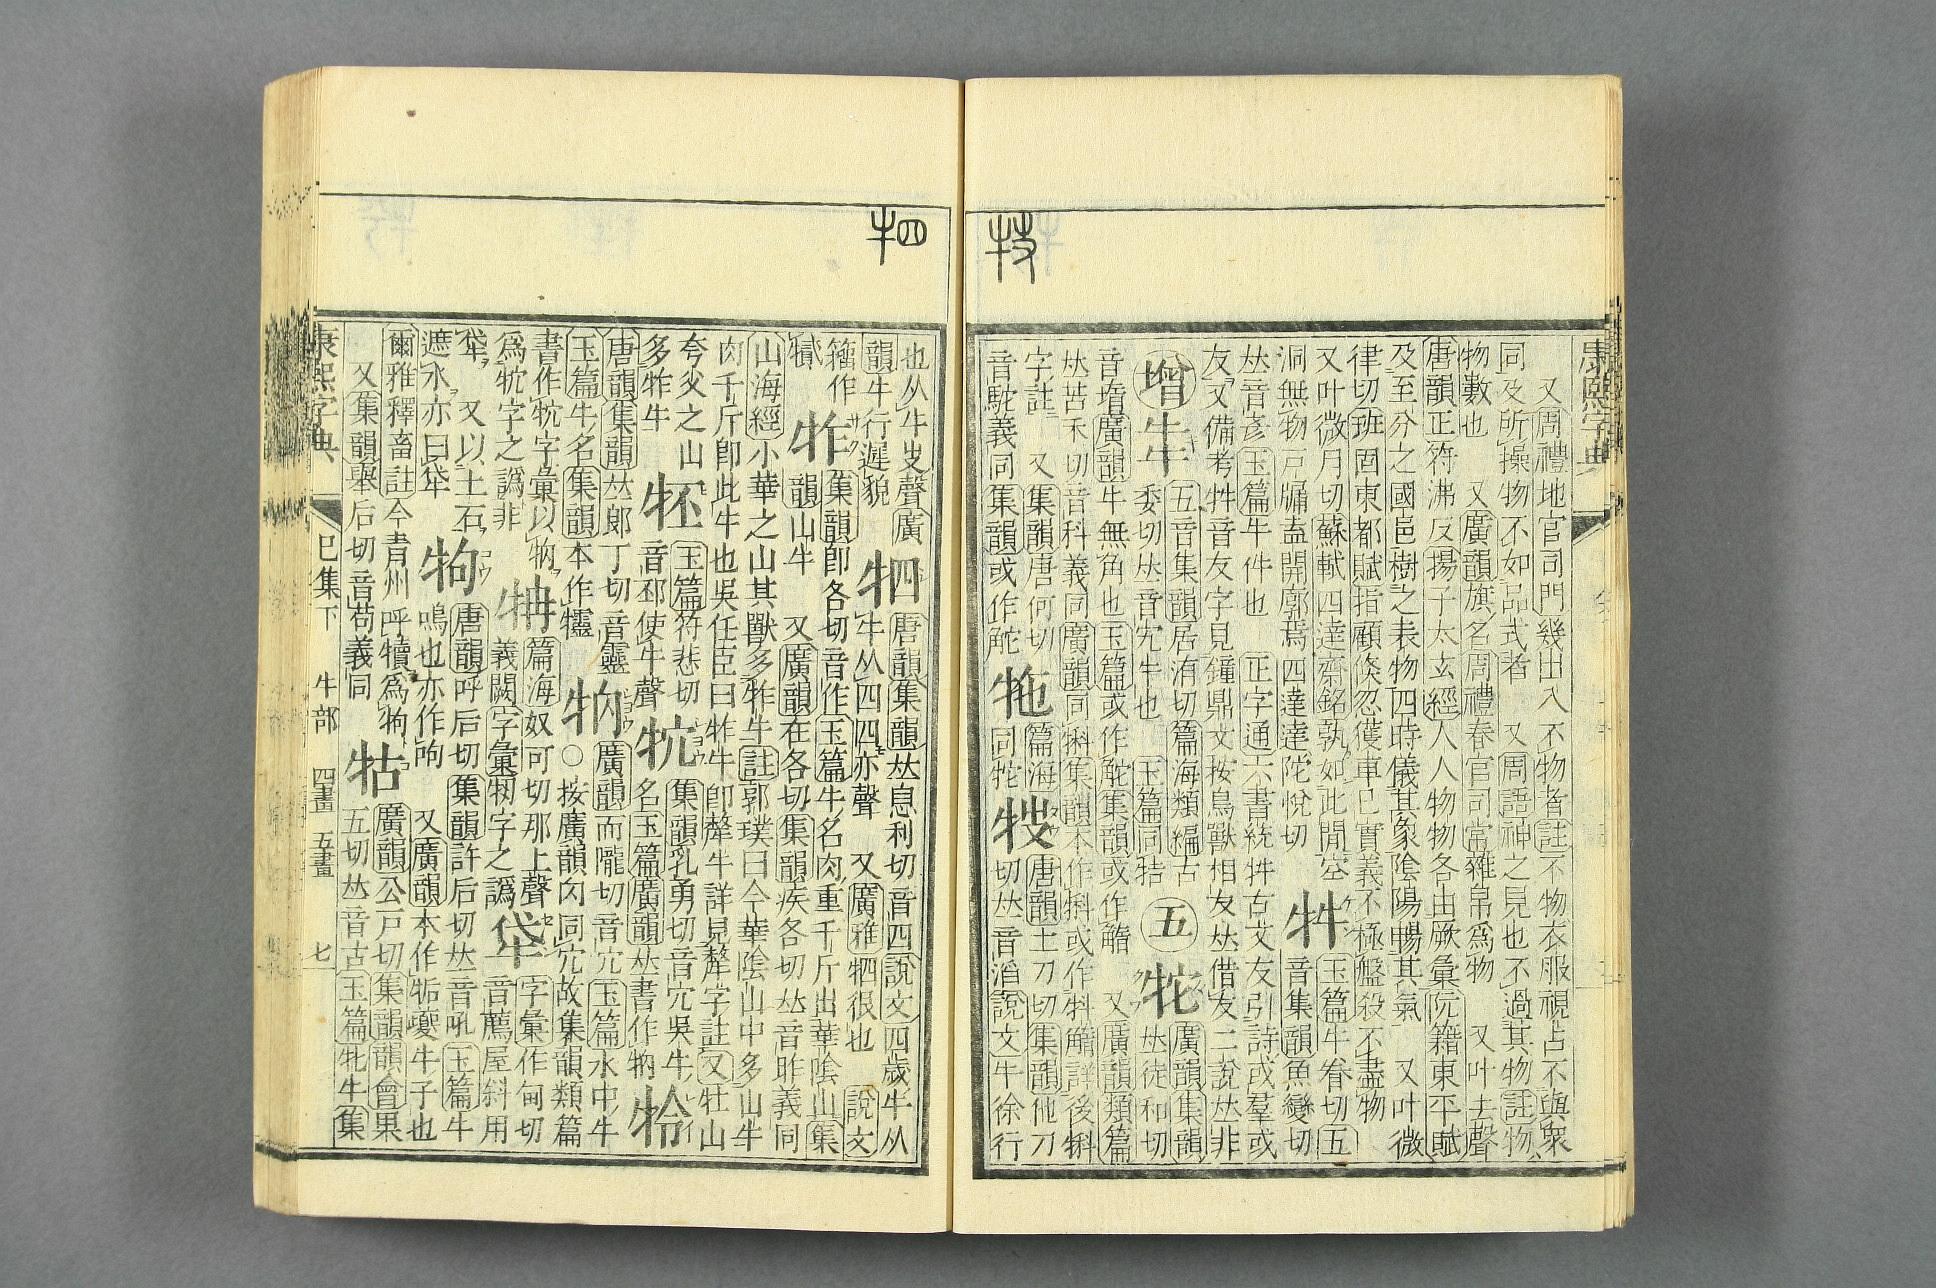 康熙字典
又周禮地官司門幾出入不物者註不物衣服視占不與衆
同及所操物不如品式者 又周語神之見也不過其物註物
物數也 又廣韻旗名周禮春官司常雜帛爲物 又叶去聲
唐韻正符沸反揚子太玄經人人物物各由厥彙阮籍東平賦
及至分之國邑樹之表物四時儀其象陰陽暢其氣 又叶微
律切班固東都賦指顧倐忽獲車已實義不極盤殺不盡物
又叶微月切蘇軾四達齋銘孰如此閒空
洞無物戸牖盍開廓焉四達達陀悅切
牪
玉篇牛眷切五
音集韻魚變切
𠀤音彥玉篇牛件也 正字通六書統牪古文友引詩或羣或
友又備考牪音友友字見鐘鼎文按鳥獸相友𠀤借友二說𠀤非
增
五音集韻居洧切篇海類編古
委切𠀤音宄牛也 玉篇同牿
五
牠
𠀤徒和切
廣韻集韻
音墮廣韻牛無角也玉篇或作𩿽集韻或作䚔 又廣韻類篇
𠀤苦禾切音科義同廣韻同犐集韻本作犐或作䚵詳後犐
字註 又集韻唐何切
音駝義同集韻或作𩿽
牠
篇海
同牠
𤘘
唐韻土刀切集韻他刀
切𠀤音滔說文牛徐行
𤘘
牭
也从牛𠬢聲廣
韻牛行遲貌
牭
唐韻集韻𠀤息利切音四說文四歲牛从
牛从四四亦聲 又廣雅牭很也 說文
籀作
𤛾
㸲
集韻卽各切音作玉篇牛名肉重千斤出華陰山集
韻山牛 又廣韻在各切集韻疾各切𠀤音昨義同
山海經小華之山其獸多㸲牛註郭璞曰今華陰山中多山牛
肉千斤卽此牛也吳任臣曰㸲牛卽犛牛詳見犛字註又牡山
夸父之山
多㸲牛
㸬
玉篇符悲切
音邳使牛聲
㸰
集韻乳勇切音宂吳牛
名玉篇廣韻𠀤書作㸻
㸳
唐韻集韻𠀤郎丁切音靈
玉篇牛名集韻本作㸳
㸻
廣韻而隴切音宂玉篇水中牛
○按廣韻㕯同宂故集韻類篇
書作㸰字彙以㸻
爲㸰字之譌非
𤘽
篇海奴可切那上聲
義闕字彙㸻字之譌
㸫
字彙作甸切
音薦屋斜用
㸫 又以土石
遮水亦曰㸫
㸸
唐韻呼后切集韻許后切𠀤音吼玉篇牛
鳴也亦作呴 又廣韻本作㸸夔牛子也
爾雅釋畜註今靑州呼犢爲㸸
又集韻舉后切音苟義同
牯
廣韻公戸切集韻韻會果
五切𠀤音古玉篇牝牛集
康熙字典 巳集下 牛部 四畫 五畫 七